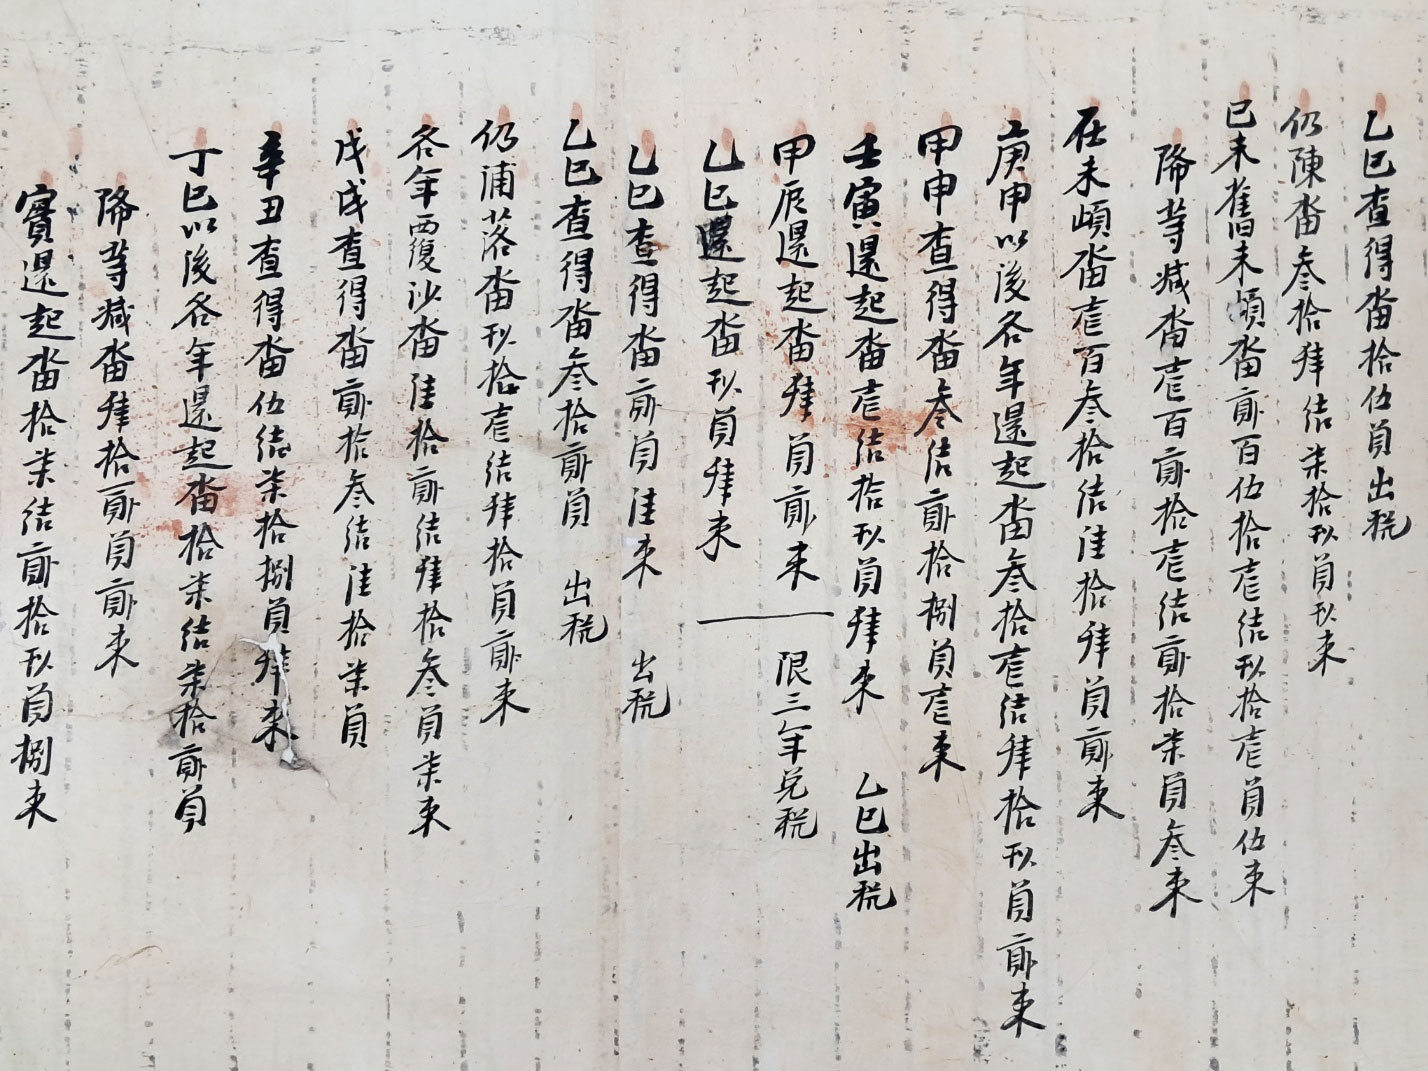 乙巳查得畓拾伍負出稅
仍陳畓叁拾肆結柒拾玖負玖束
已未舊未頉畓貳百伍拾壹結玖拾壹負伍束
降等減畓壹百貳拾壹結貳拾柒負叁束
在未頉畓壹百叁拾結陸拾肆負貳束
庚申以後各年還起畓叁拾壹結肆拾玖負貳束
甲申查得畓叁結貳拾捌負壹束
壬寅還起畓壹結拾玖負肆束 乙巳出稅
甲辰還起畓肆負貳束 限三年免稅
乙巳還起畓玖負肆束
乙巳查得畓貳負陸束 出稅
乙巳查得畓叁拾貳負 出稅
仍浦落畓玖拾壹結肆拾負貳束
各年覆沙畓陸拾貳結肆拾叁負柒束
戊戌查得畓貳拾叁結陸拾柒負
辛丑查得畓伍結柒拾捌負肆束
丁巳以後各年還起畓拾柒結柒拾貳負
降等減畓肆拾貳負貳束
實還起畓拾柒結貳拾玖負捌束